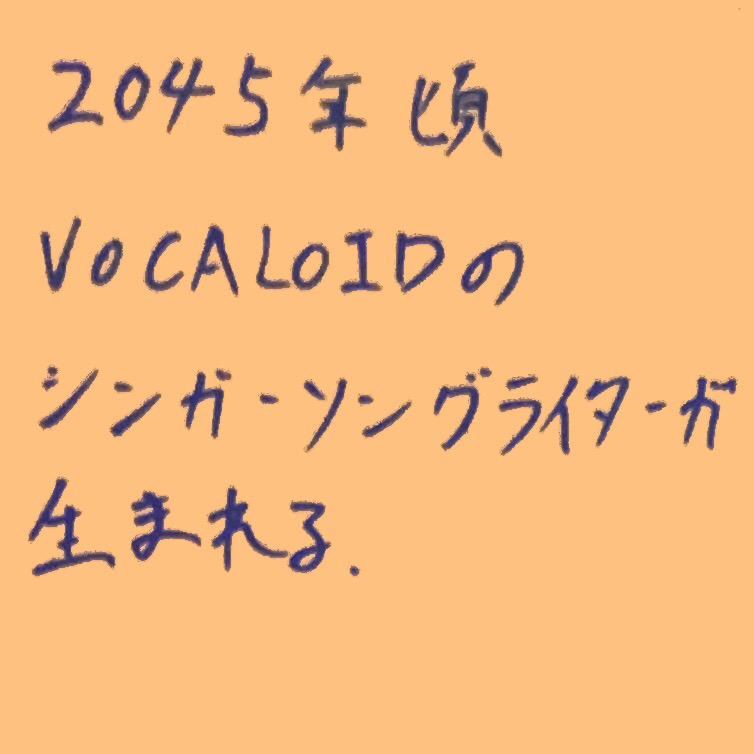 2045年頃
VOCALOIDの
シンガーソングライターが
生まれる.